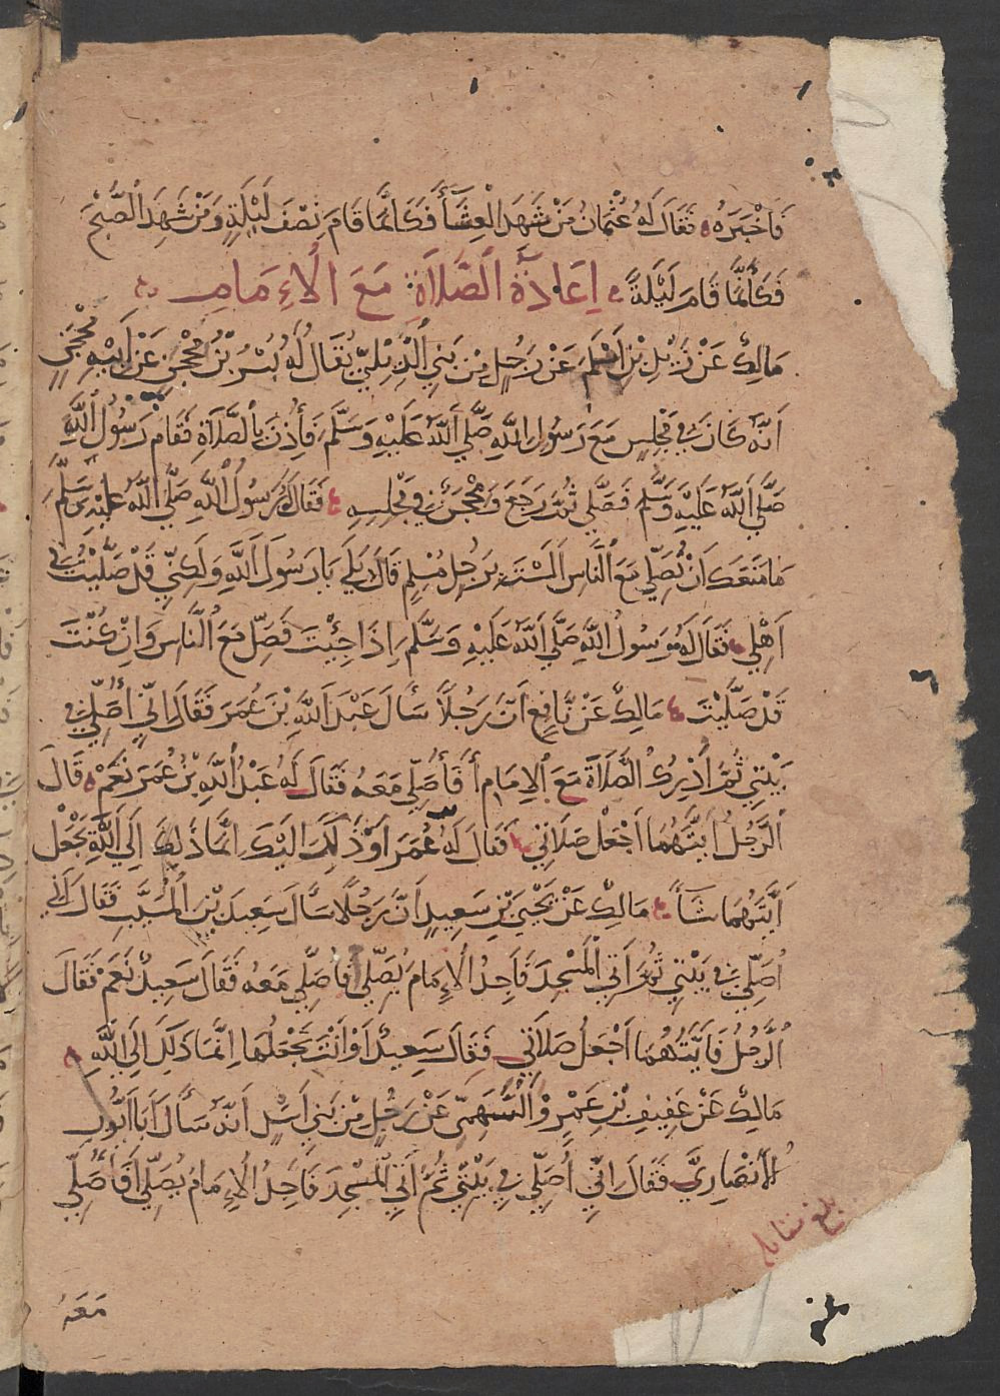 فَاخْبَرَهُ فَقَالَ لَهُ عُثْمَانُ مَنْ شَهِدَ الْعِشَآءَ فَكَاَنَّمَا قَامَ نِصْفَ لَيْلَةٍ وَمَنْ شَهِدَ الصُّبْحَ
فَكَاَنَّمَا قَامَ لَيْلَةً اِعَادَةُ الصَّلَاةِ مَعَ الْاِمَامِ
مَالِكٌ عَنْ زَيْدِ بْنِ اَسْلَمَ عَنْ رَجُلٍ مِنْ بَنِي الدِّيْلِيِّ يُقَالُ لَهُ بُسْرُ بْنُ مِحْجَنٍ عَنْ اَبِيهِ مِحْجَنٍ
اَنَّهُ كَانَ فِي مَجْلِسٍ مَعَ رَسُولِ اللَّهِ صَلَّي اللَّهُ عَلَيْهِ وَسَلَّمَ فَاُذِنَ بِالصَّلَاةِ فَقَامَ رَسُولُ اللَّهِ
صَلَّي اللَّهُ عَلَيْهِ وَسَلَّمَ فَصَلَّي ثُمَّ رَجَعَ وَمِحْجَنٌ فِي مَجْلِسِهِ فَقَالَ لَهُ رَسُولُ اللَّهِ صَلَّي اللَّهُ عَلَيْهِ وَسَلَّمَ
مَا مَنَعَكَ اَنْ تُصَلِّي مَعَ النَّاسِ اَلَسْتَ بِرَجُلٍ مُسْلِمٍ قَالَ بَلَي يَا رَسُولَ اللَّهِ وَلَكِنِّي قَدْ صَلَّيْتُ فِي
اَهْلِي فَقَالَ لَهُ رَسُولُ اللَّهِ صَلَّي اللَّهُ عَلَيْهِ وَسَلَّمَ اِذَا جِئْتَ فَصَلِّ مَعَ النَّاسِ وَاِنْ كُنْتَ
قَدْ صَلَّيْتَ مَالِكٌ عَنْ نَافِعٍ اَنَّ رَجُلًا سَاَلَ عَبْدَ اللَّهِ بْنَ عُمَرَ فَقَالَ اِنِّي اُصَلِّي فِي
بَيْتِي ثُمَّ اُدْرِكُ الصَّلَاةَ مَعَ الْاِمَامِ اَفَاُصَلِّي مَعَهُ فَقَالَ لَهُ عَبْدُ اللَّهِ بْنُ عُمَرَ نَعَمْ قَالَ
الرَّجُلُ اَيَّتَهُمَا اَجْعَلُ صَلَاتِي فَقَالَ لَهُ عُمَرَ اَوَذَلِكَ اِلَيْكَ اِنَّمَا ذَلِكَ اِلَي اللَّهِ يَجْعَلُ
اَيَّتَهُمَا شَآءَ مَالِكٌ عَنْ يَحْيَي بْنِ سَعِيدٍ اَنَّ رَجُلًا سَاَلَ سَعِيدَ بْنَ الْمُسَيَّبِ فَقَالَ اِنِّي
اُصَلِّي فِي بَيْتِي ثُمَّ اَتِي الْمَسْجِدَ فَاَجِدُ الْاِمَامَ يُصَلِّي اَفَاُصَلِّي مَعَهُ فَقَالَ سَعِيدٌ نَعَمْ فَقَالَ
الرَّجُلُ فَاَيَّتُهُمَا اَجْعَلُ صَلَاتِي فَقَالَ سَعِيدٌ اَوَاَنْتَ تَجْعَلُهَا اِنَّمَا ذَلِكَ اِلَي اللَّهِ
مَالِكٌ عَنْ عَفِيفِ بْنِ عَمْرٍو السَّهْمِيِّ عَنْ رَجُلٍ مِنْ بَنِي اَسَدٍ اَنَّهُ سَاَلَ اَبَا اَيُّوبَ
الْاَنْصَارِيَّ فَقَالَ اِنِّي اُصَلِّي فِي بَيْتِي ثُمَّ اَتِي الْمَسْجِدَ فَاَجِدُ الْاِمَامَ يُصَلِّي اَفَاُصَلِّي
بلغ مقابلة
مَعَهُ